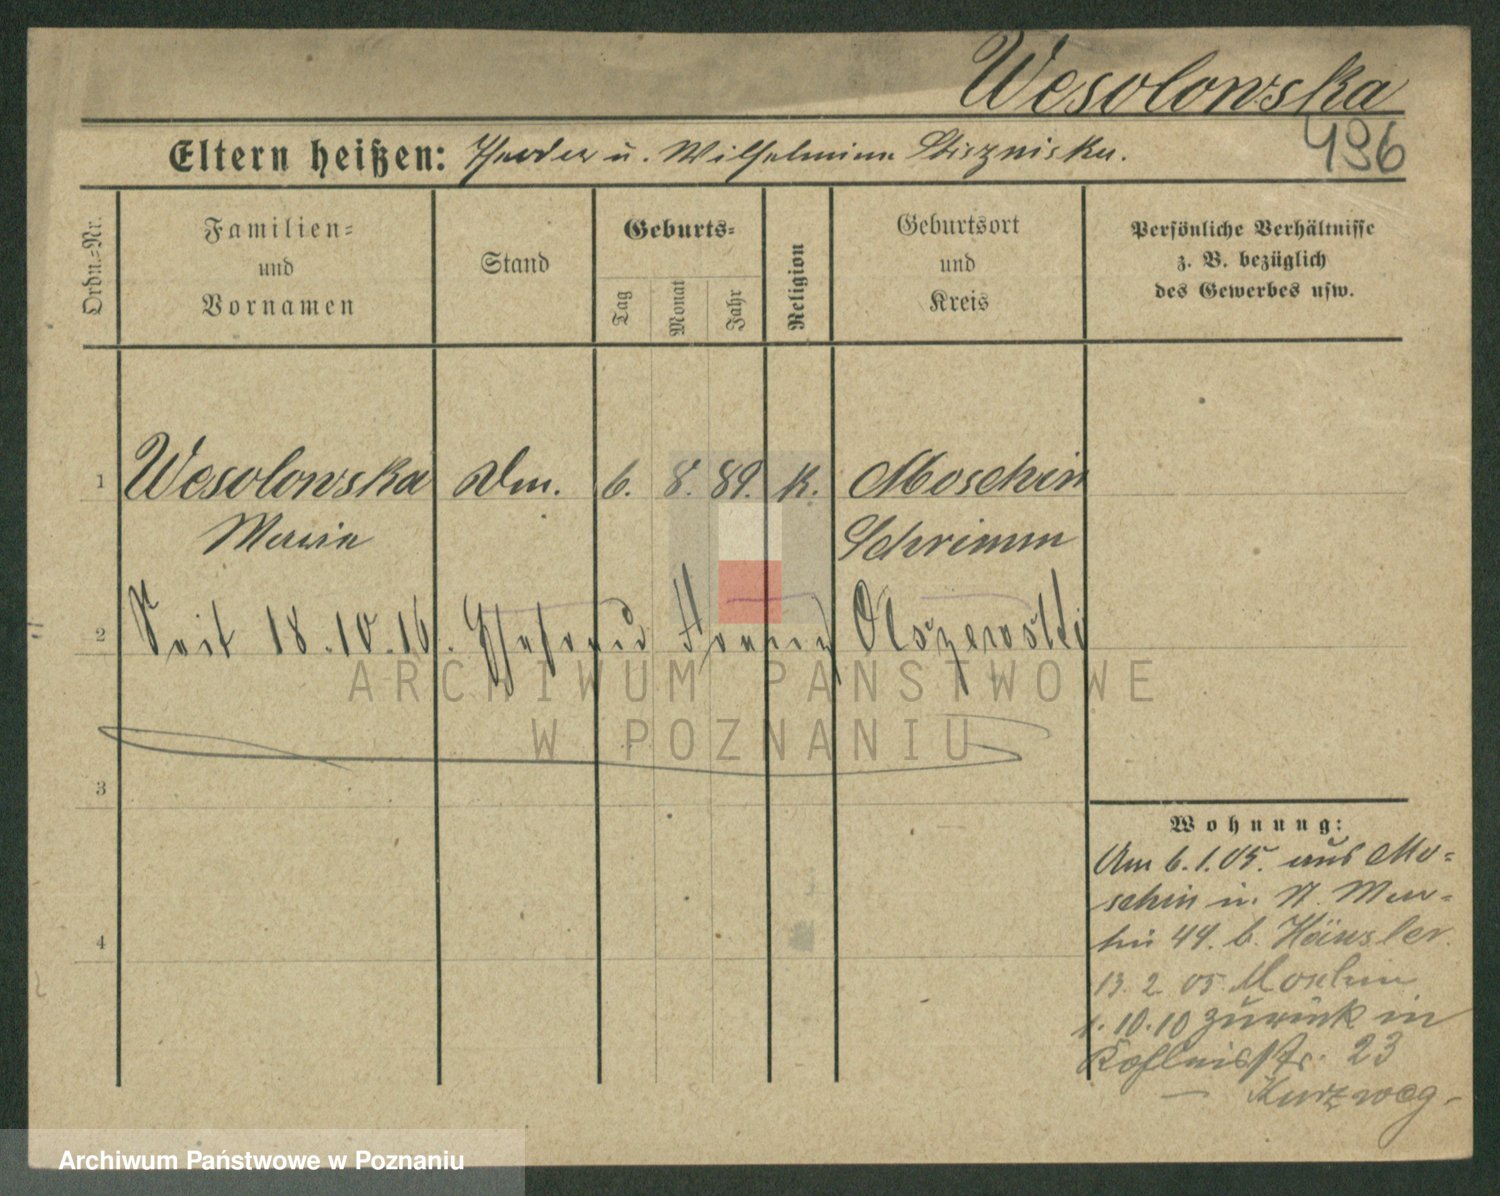 Wesolowska
496
Eltern heißen: u. Wilhelmine
Ordn.-Nr.
Familien-
und
Vornamen
Stand
Geburts-
Tag
Monat
Jahr
Religion
Geburtsort
und
Kreis
Persönliche Verhältnisse
z. B. bezüglich
des Gewerbes usw.
1 Wesolowska 6. 8. 89. K. Moschin
Maria Schrimm
2 Seit 18.10.16. Olszewski
3
4
Wohnung:
Am 6.1.05. aus Mo-
schin in St. Mar-
tin 44. b. Häusler.
13. 2 05 Moschin
1.10.10 zurück in
23
ARCHIWUM PAŃSTWOWE
W POZNANIU
Archiwum Państwowe w Poznaniu